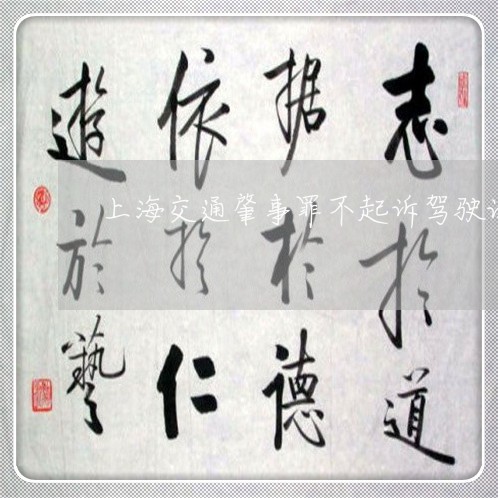 志於道
据於德
依於仁
遊於藝
上海交通肇事罪不起诉驾驶